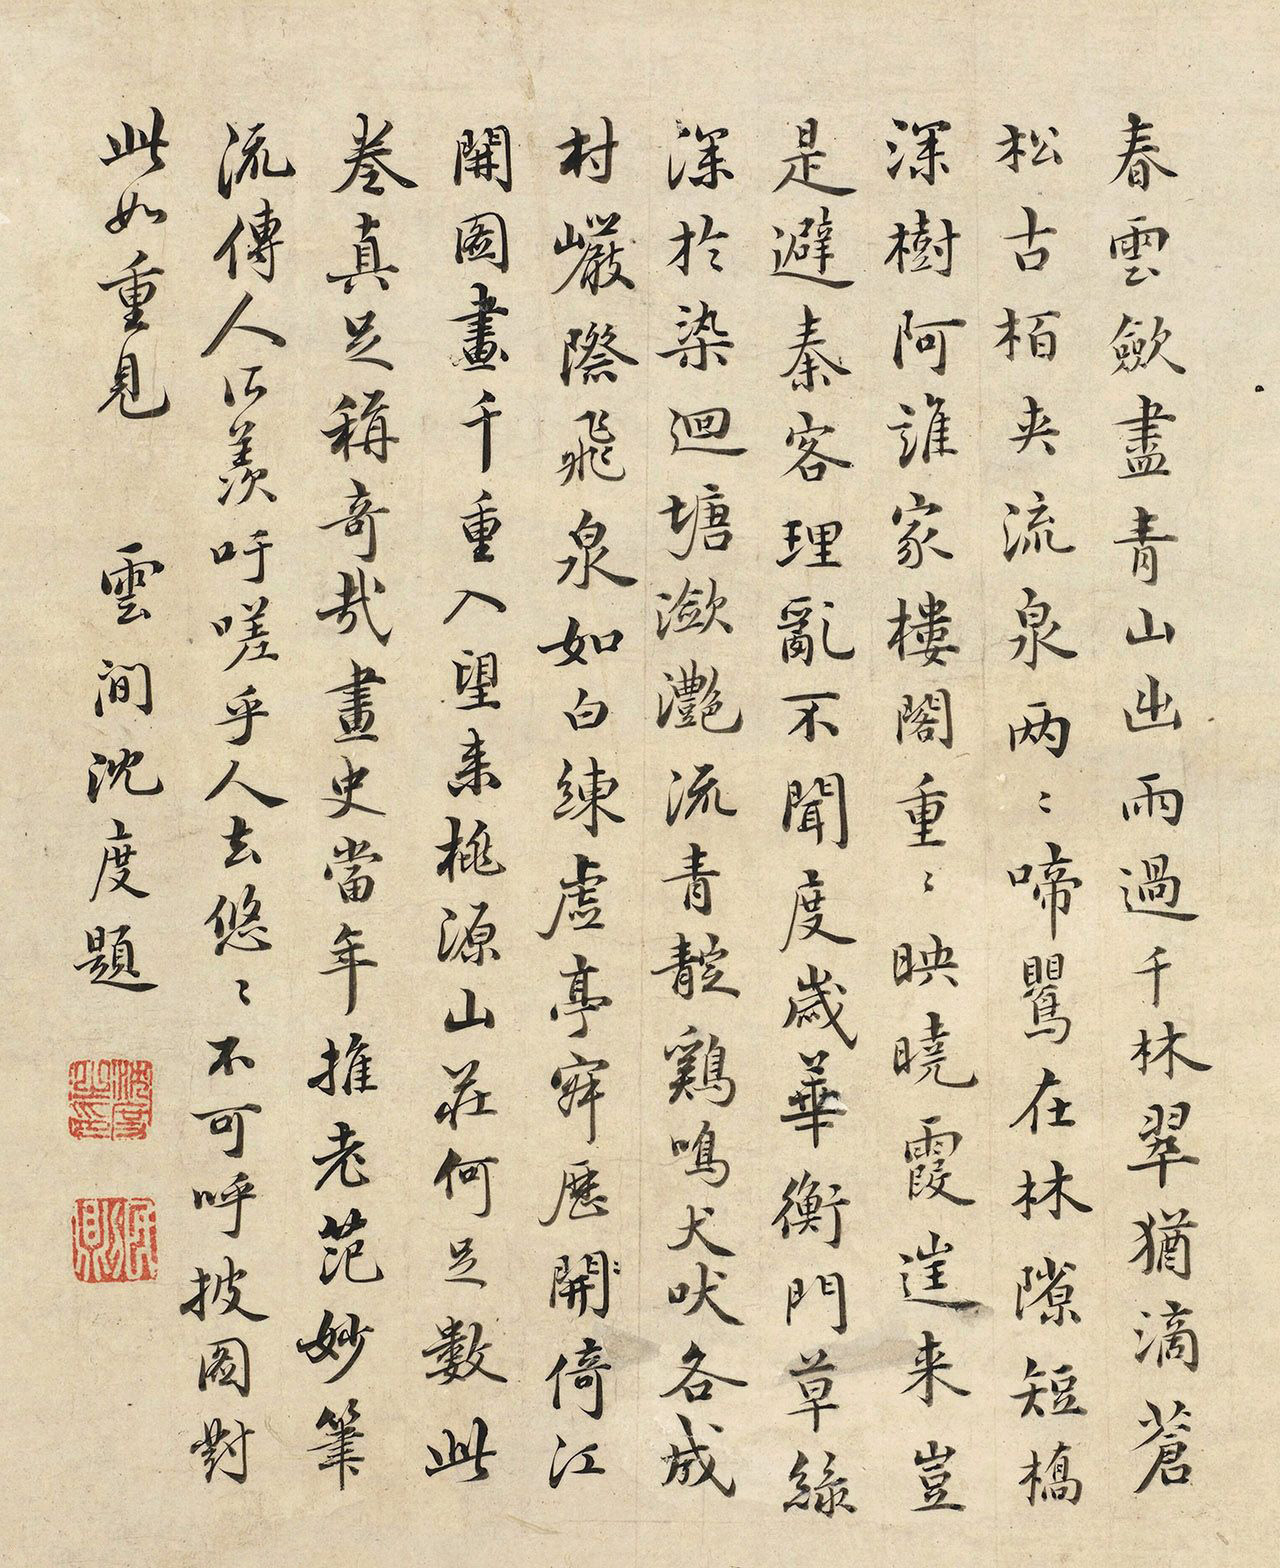 春雲歛盡青山出雨過千林翠猶滴蒼
松古栢夾流泉两〻啼鸎在林隙短橋
深樹阿誰家樓閣重〻映曉霞迬来豈
是避秦客理亂不聞度歲華衡門草綠
深於染迴塘瀲灔流青靛鷄鳴犬吠各成
村巖際飛泉如白練虛亭寂歷開倚江
開圖畫千重入望来桃源山莊何足數此
卷真足稱奇哉畫史當年推老范妙筆
流傳人所羨吁嗟乎人去悠〻不可呼披圖對
此如重見 雲間沈度題
沈度之印
民則